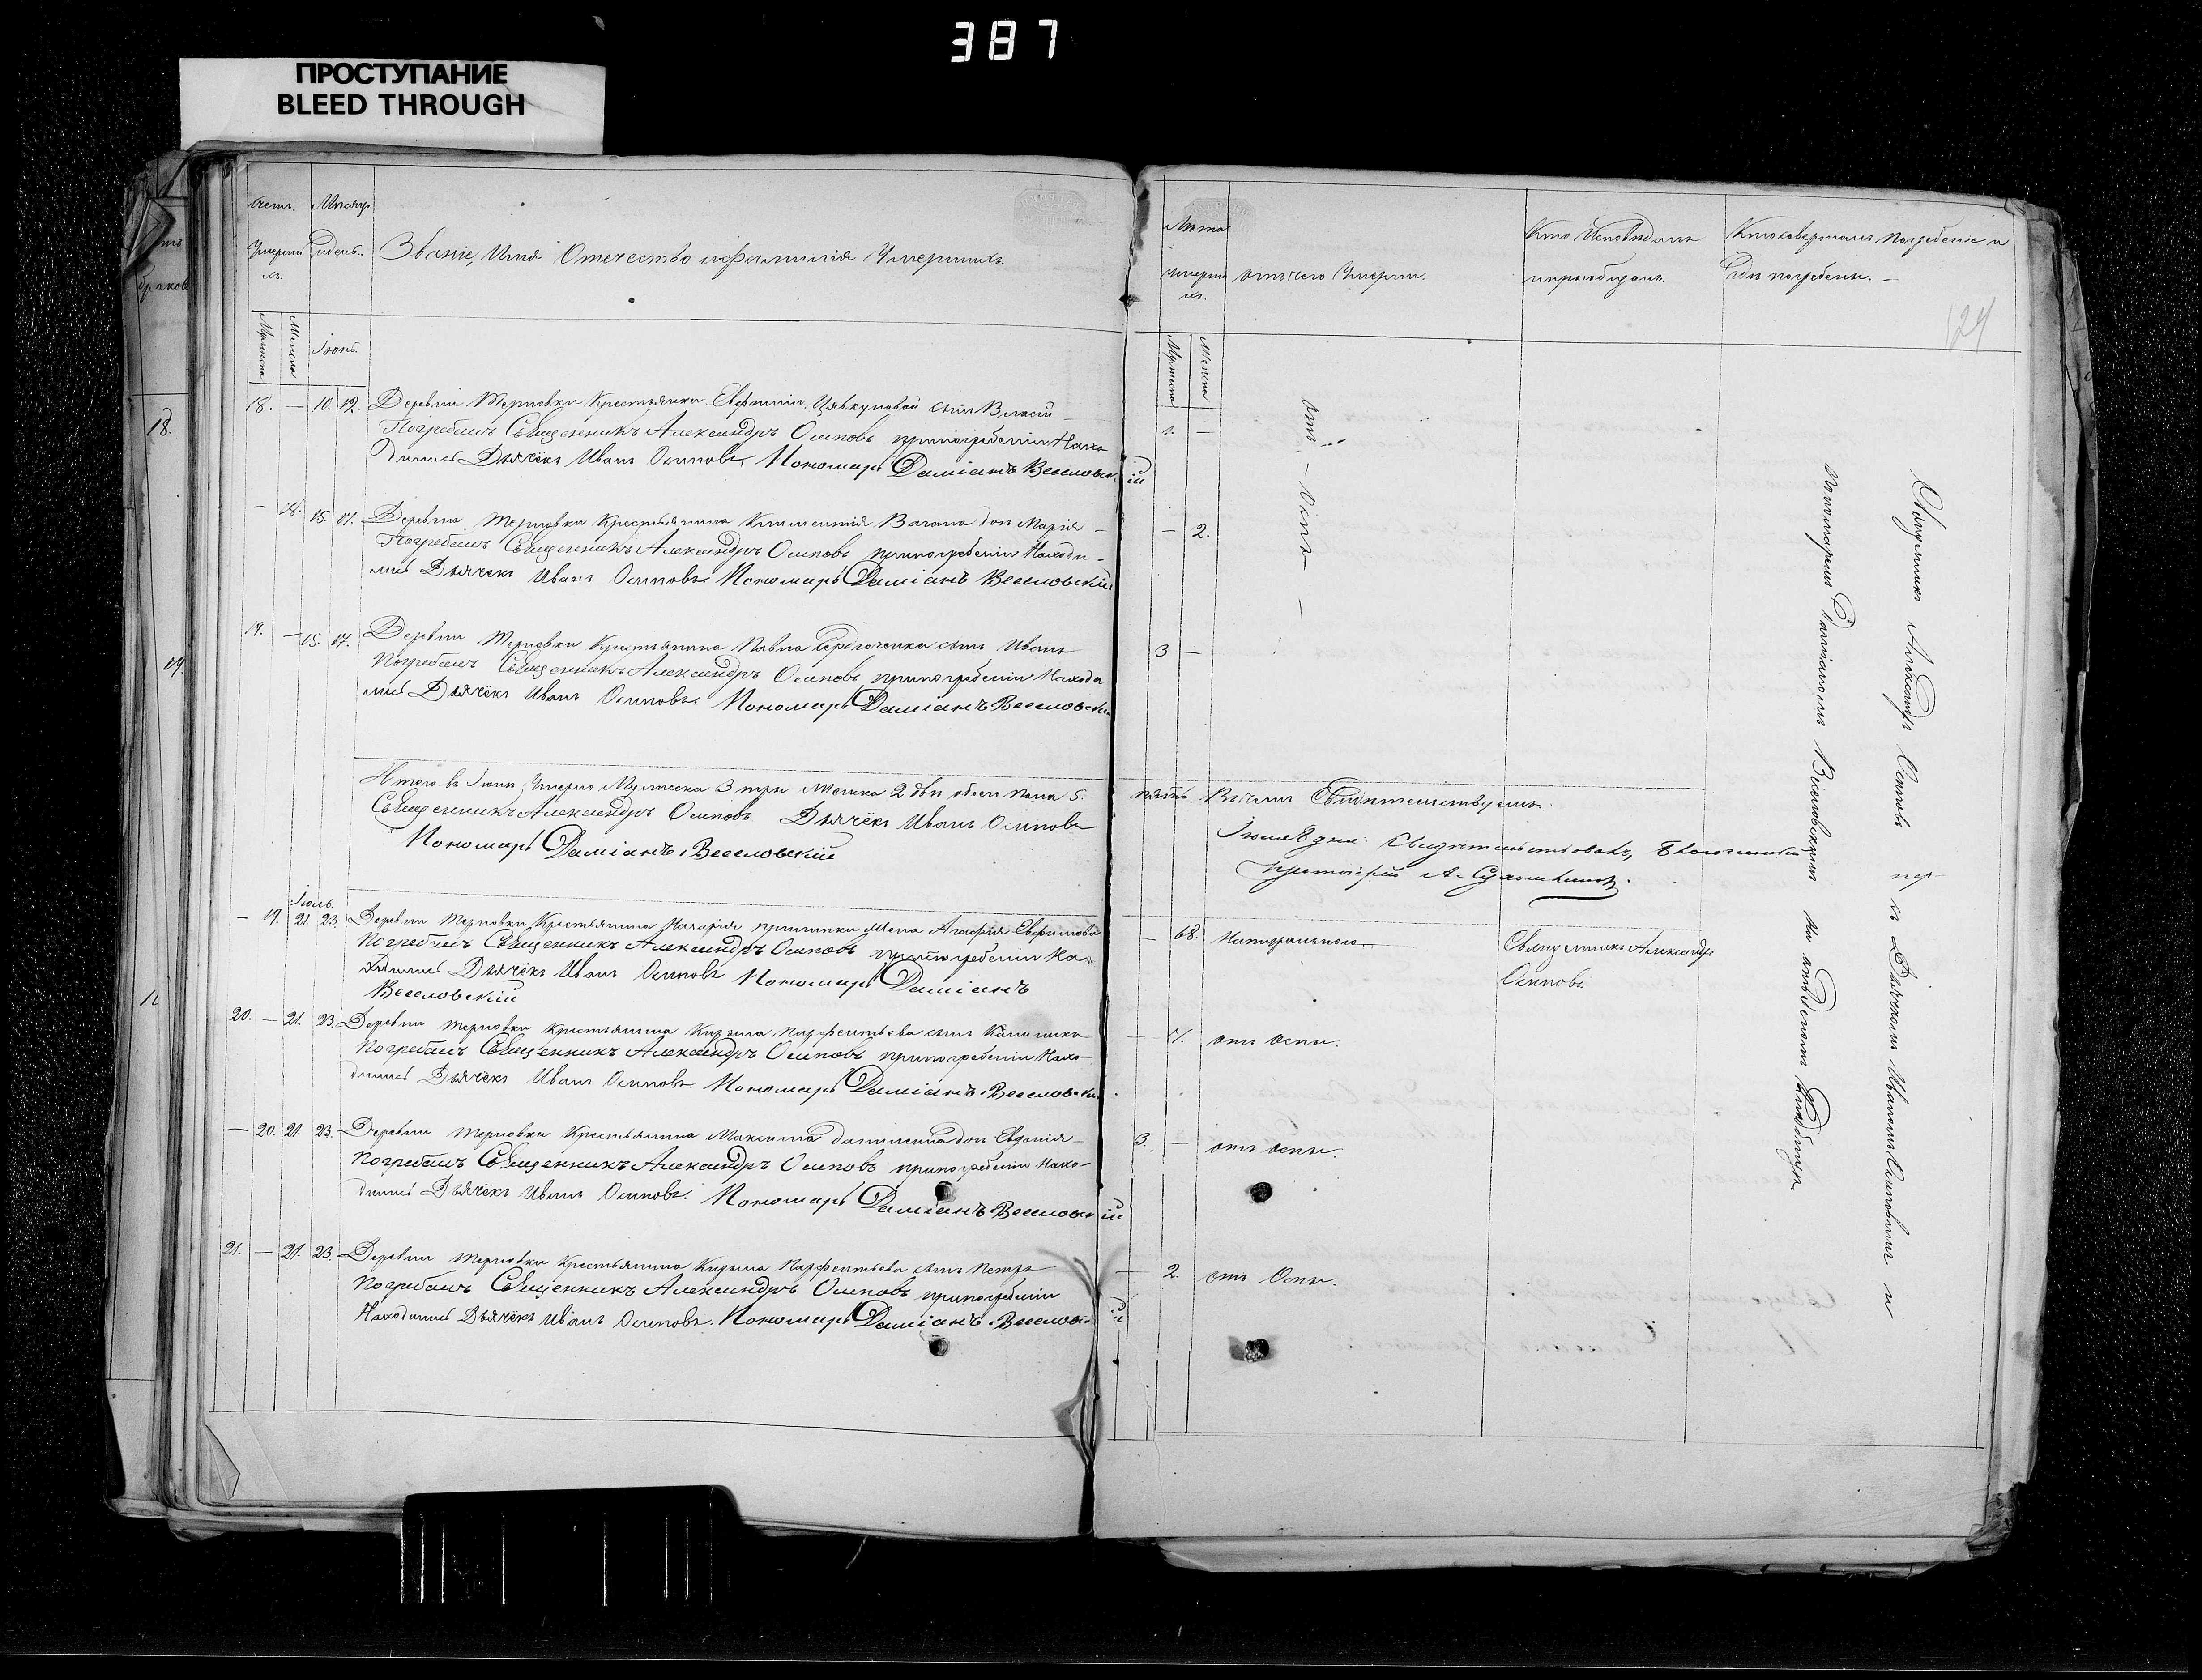 387
ПРОСТУПАНИЕ
BLEED THROUGH
Счетъ Умершихъ.
Мужеска
Женска
Мѣсяцъ и день.
Званіе, Имя Отечество и фамилія Умершихъ.
Іюнь.
18. — 10. 12. Деревни Терновки Крестьянки Евфиміи сынъ Власій
Погребалъ Священникъ Александръ Осиповъ при погребеніи Нахо
дились Дьячёкъ Иванъ Осиповъ Пономарь Даміанъ Веселовскій
— 18. 15. 17. Деревни Терновки Крестьянина Климентія дочь Марія —
Погребалъ Священникъ Александръ Осиповъ при погребеніи Находи-
лись Дьячекъ Иванъ Осиповъ Пономарь Даміанъ Веселовскій
19. — 15. 17. Деревни Терновки Крестьянина Павла сынъ Иванъ
Погребалъ Священникъ Александръ Осиповъ при погребеніи Находи
лись Дьячёкъ Иванъ Осиповъ Пономарь Даміанъ Веселовскій
Итого въ Іюнѣ Умерло Мужеска 3 три Женска 2 двѣ обоего пола 5.
Священникъ Александръ Осиповъ Дьячёкъ Иванъ Осиповъ
Пономарь Даміанъ Веселовскій
Іюль.
— 19. 21. 23. Деревни Терновки Крестьянина Назарія жена Агафія Евфимова
Погребалъ Священникъ Александръ Осиповъ при погребеніи На-
ходились Дьячёкъ Иванъ Осиповъ Пономарь Даміанъ
Веселовскій
20. — 21. 23. Деревни Терновки Крестьянина Кирила Парфентьева сынъ
Погребалъ Священникъ Александръ Осиповъ при погребеніи Нахо-
дились Дьячёкъ Иванъ Осиповъ. Пономарь Даміанъ Веселовскій
— 20. 21. 23. Деревни Терновки Крестьянина Максима дочь Евдокія —
Погребалъ Священникъ Александръ Осиповъ при погребеніи Нахо-
дились Дьячёкъ Иванъ Осиповъ. Пономарь Даміанъ Веселовскій
21. — 21. 23. Деревни Терновки Крестьянина Кирила Парфентьева сынъ Петръ
Погребалъ Священникъ Александръ Осиповъ при погребеніи
Находились Дьячёкъ Иванъ Осиповъ. Пономарь Даміанъ Веселовскій
Лѣта умершихъ.
Мужеска
Женска
Отъ чего Умерли.
Кто Исповѣдалъ и пріобщалъ.
Кто совершалъ Погребеніе и
Гдѣ погребены. —
124
1. —
— 2.
3 —
Отъ — Оспъ —
пять. Въ чемъ Свидѣтельствуемъ.
Іюля 8 дня. Свидѣтельствовалъ, Благочинный
Протоіерей А.
— 68. Натурально
Священникъ Александръ
Осиповъ.
— 1. отъ оспы.
3. — отъ оспы.
— 2. отъ Оспы.
Священникъ Александръ Осиповъ съ Дьячкомъ Иваномъ Осиповымъ и
Пономаремъ Даміаномъ Веселовскимъ на отведенномъ кладбищѣ
18.
19